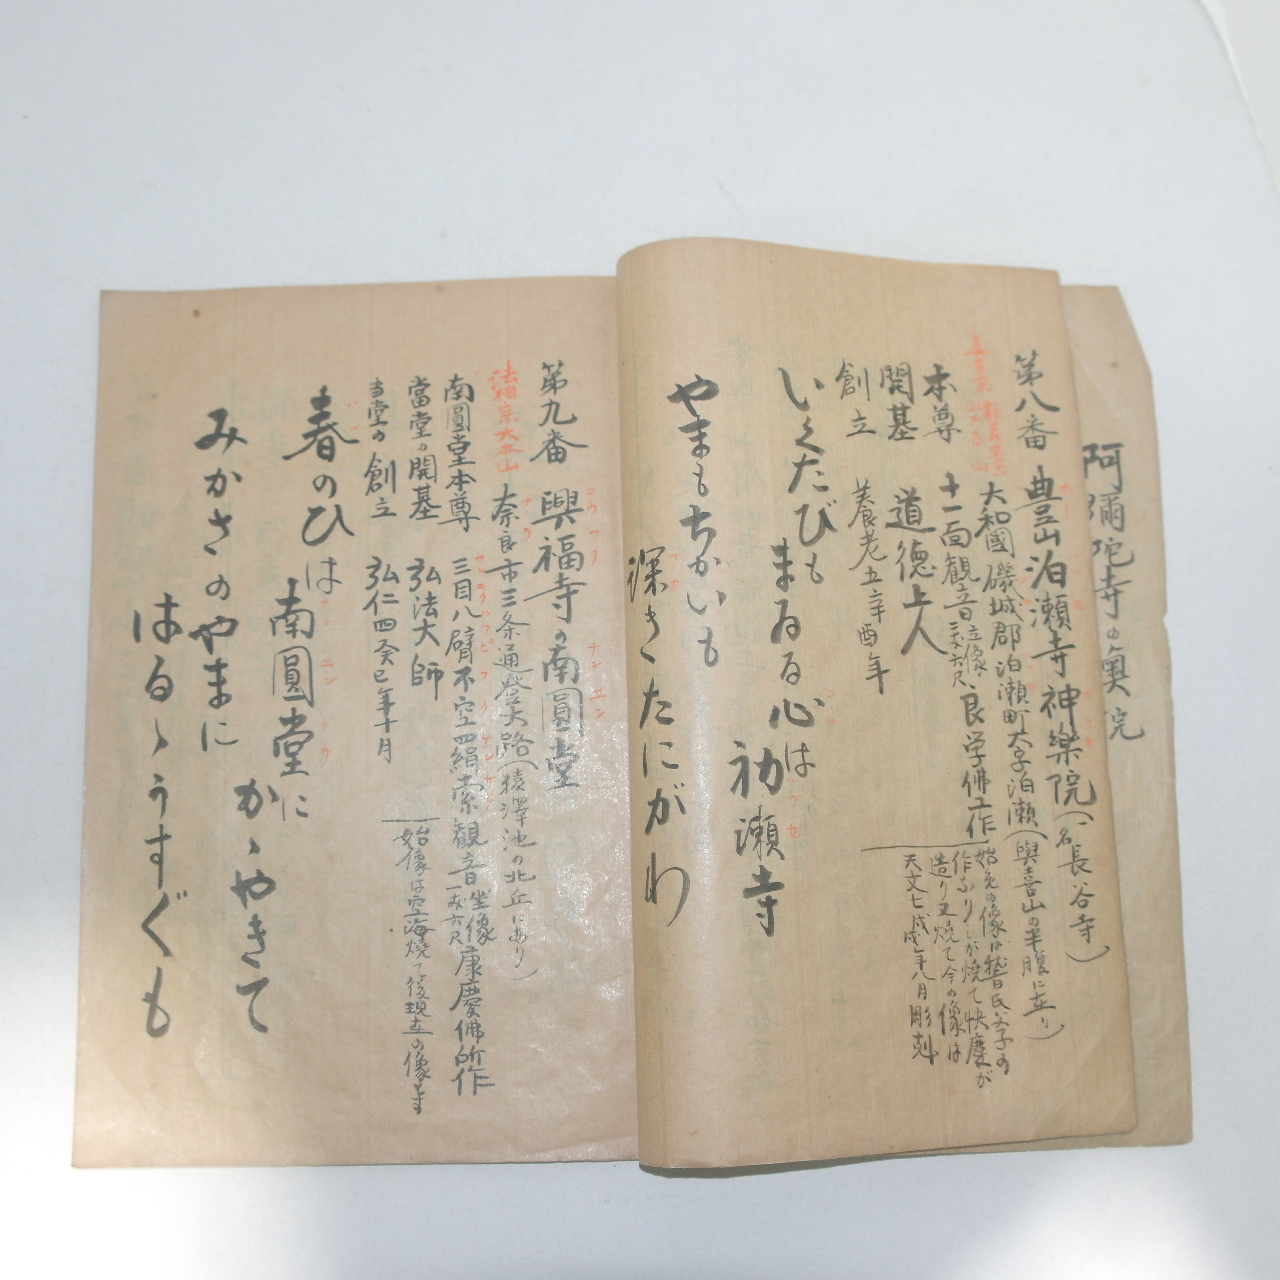 阿彌陀寺の奥院
第八番 豊山泊瀬寺神樂院(一名長谷寺)
大和國磯城郡泊瀬町大字泊瀬(與喜山の半腹に在り)
本尊 十一面観音立像二丈六尺良学佛工作
始免の像は稽首氏父子の
作なりしが焼て快慶が
造り又焼て今の像は
天文七戊戌年八月彫剋
開基 道德上人
創立 養老五辛酉年
いくたびも まゐる心は 初瀬寺
やまもちかいも 深きたにがわ
第九番 興福寺の南圓堂
法相宗大本山
奈良市三条通登大路(猿澤池の北丘にあり)
南圓堂本尊 三目八臂不空羂索観音坐像一丈六尺康慶佛所作
當堂の開基 弘法大師
始像は空海焼て後現在の像寺
当堂の創立 弘仁四癸巳年十月
春のひは 南圓堂に かゝやきて
みかさのやまに はるゝうすぐも